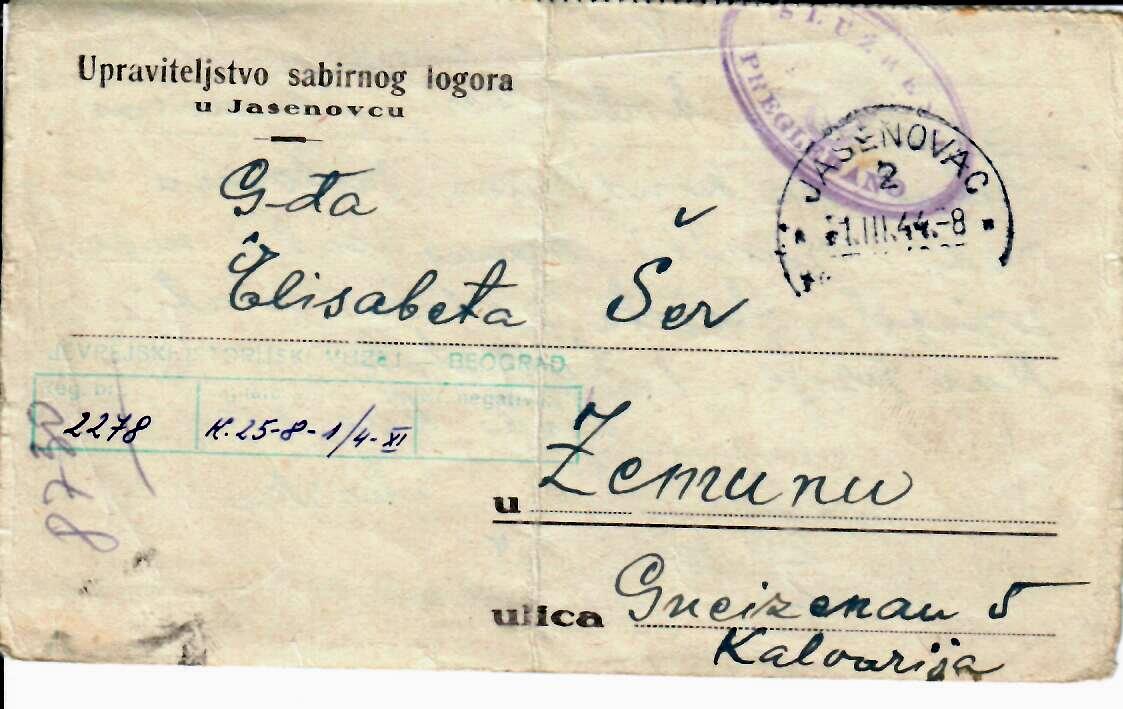 Upraviteljstvo sabirnog logora
u Jasenovcu
SLUŽBE
PREGLEDANO
JASENOVAC
2
1.III.44.-8
G-đa
Elisabeta Šer
JEVREJSKI ISTORIJSKI MUZEJ — BEOGRAD
Reg. br. negativa
2278 K.25-8-1/4-XI
87-30
u Zemunu
ulica Gneizenau 5
Kalvarija